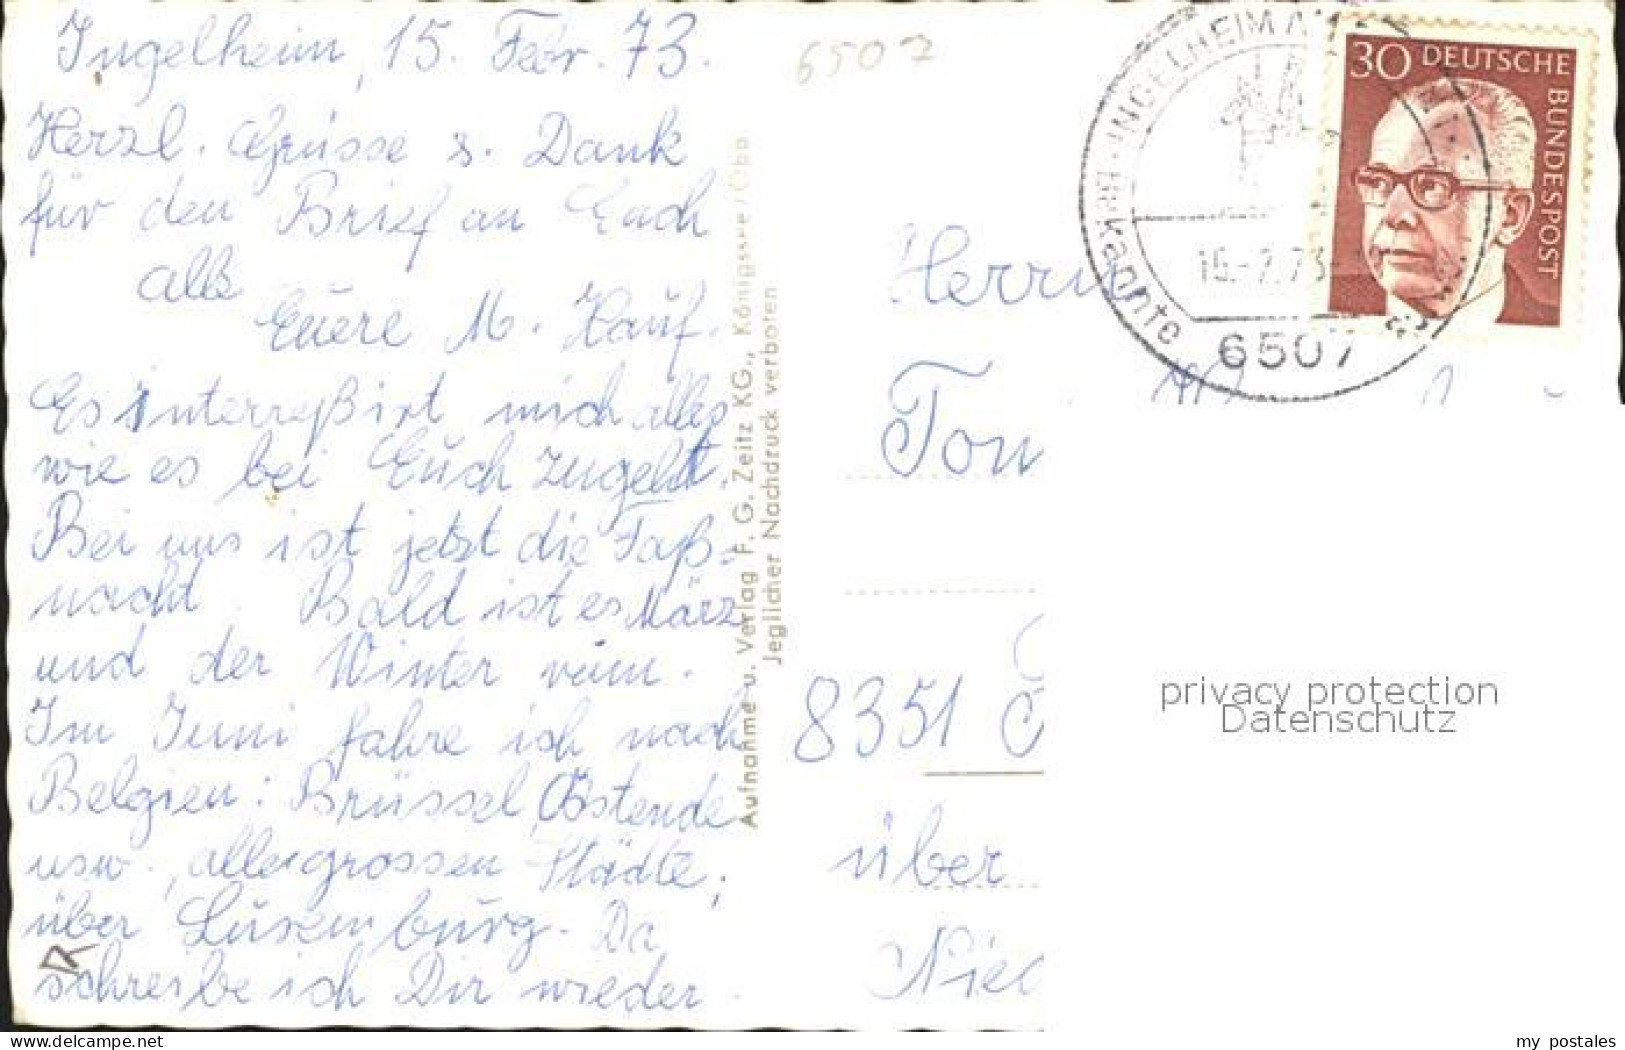 Ingelheim, 15. Febr. 73.
Herzl. Grüsse s. Dank
für den Brief an Euch
alle
Euere M. Hauf.
Es interreßirt mich alles
wie es bei Euch zugeht.
Bei uns ist jetzt die Faß-
nacht. Bald ist es März
und der Winter rum.
Im Juni fahre ich nach
Belgien: Brüssel, Ostende
usw., alle grossen Städte,
über Luxemburg. Da
schreibe ich Dir wieder.
Aufnahme u. Verlag F. G. Zeitz KG., Königssee/Obb
Jeglicher Nachdruck verboten
6507
INGELHEIM AM
kannte
6507
30 DEUTSCHE
BUNDESPOST
Herrn
Ton
8351
über
Nied
privacy protection
Datenschutz
www.delcampe.net
my_postales